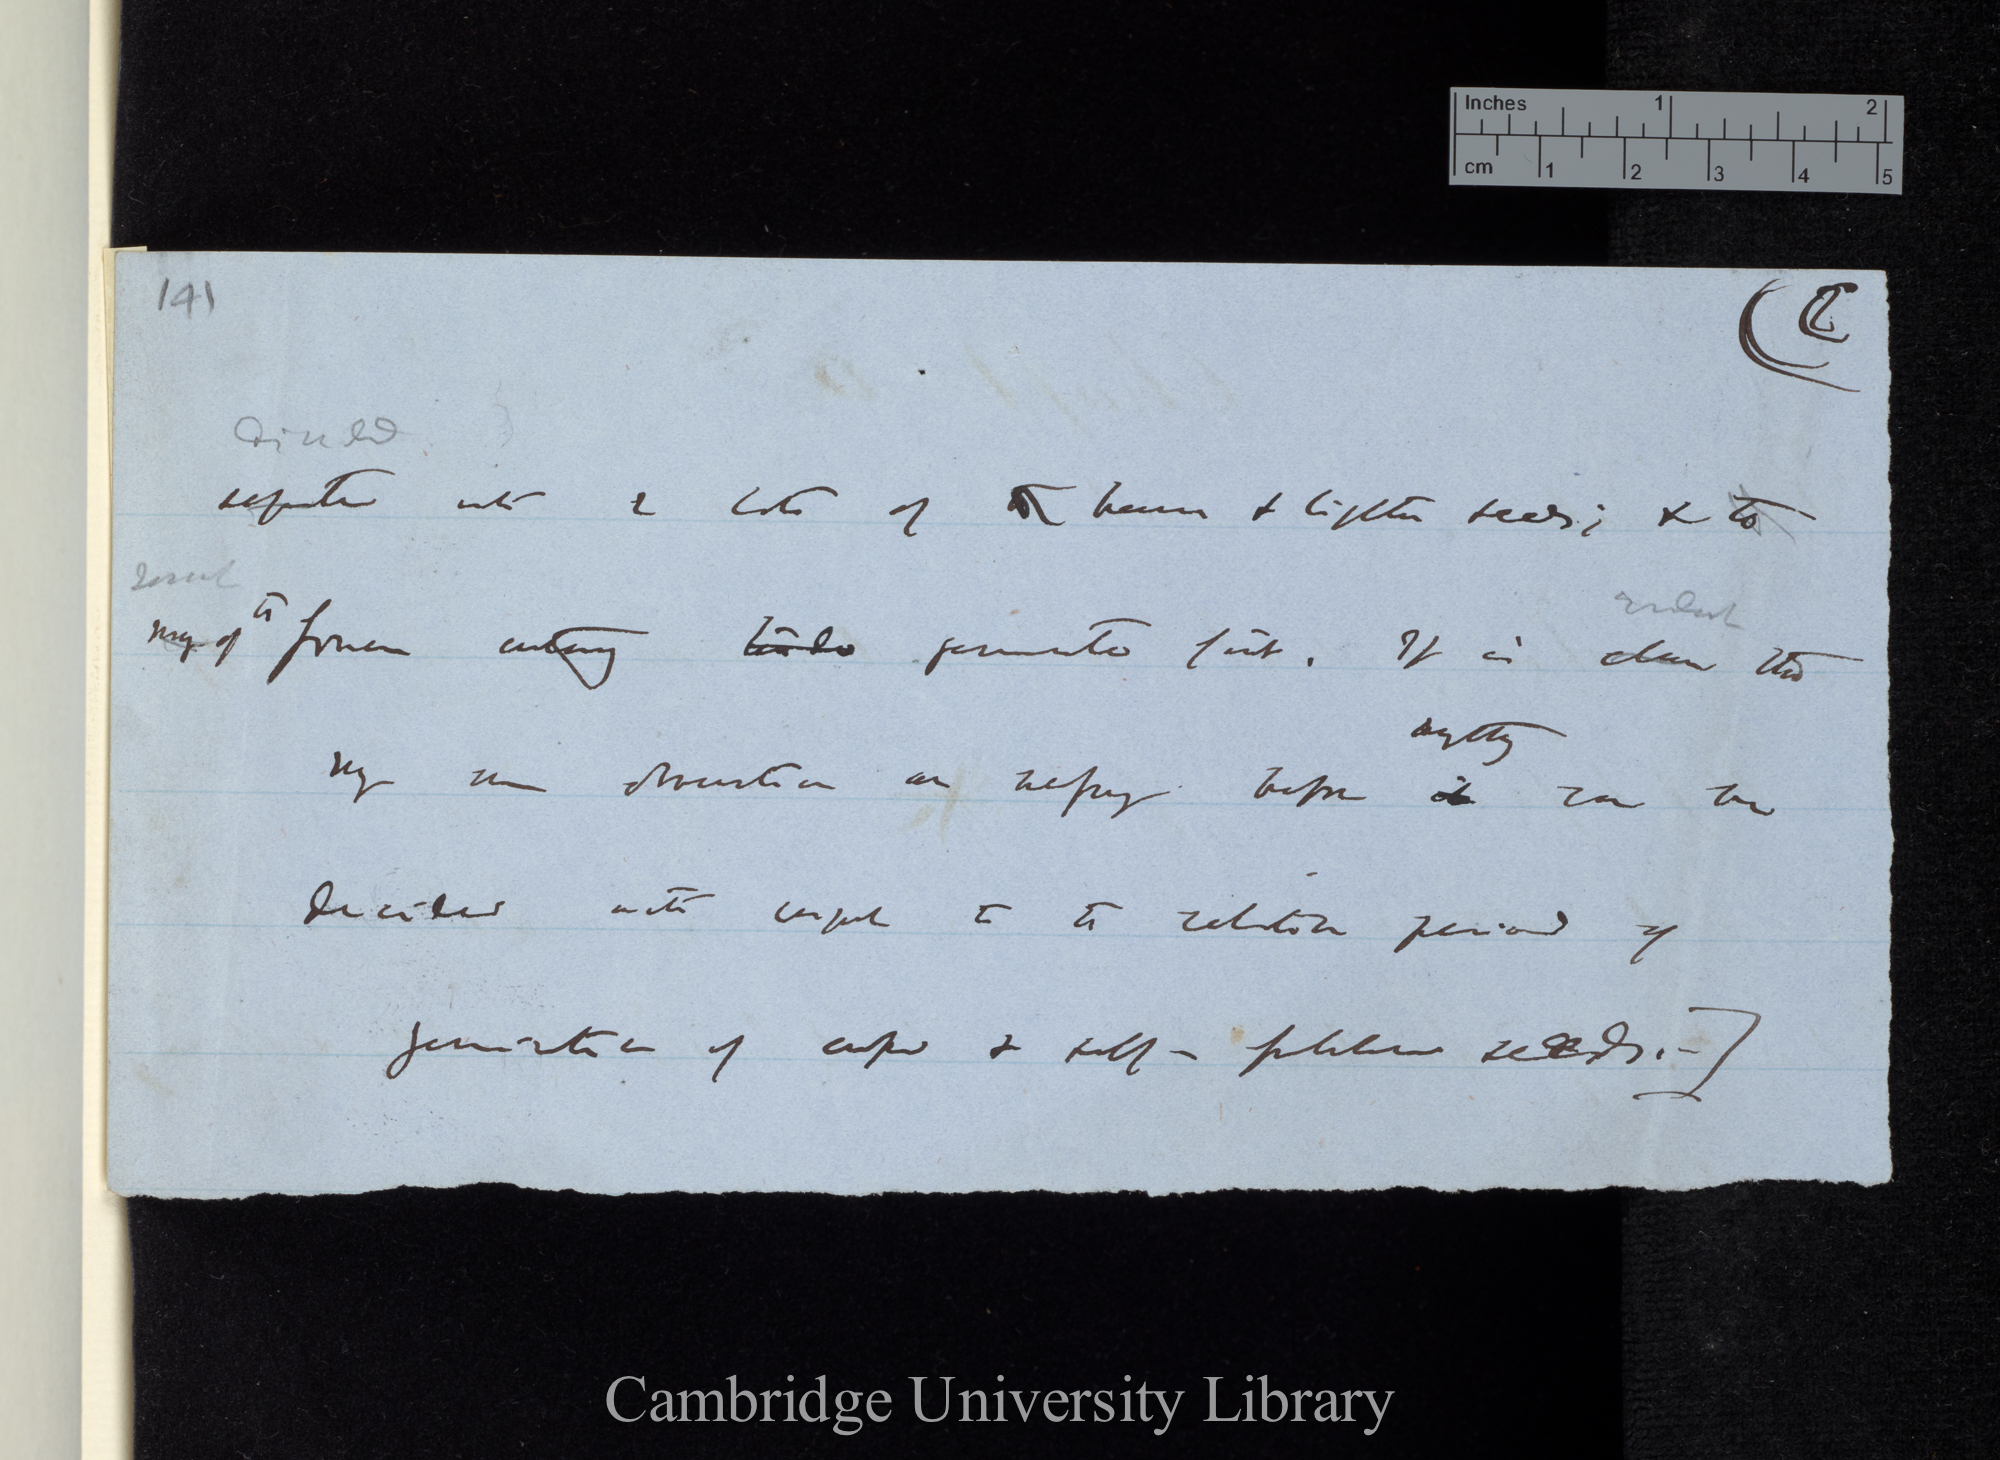 Inches 1 2
cm 1 2 3 4 5
141
divided
separated into 2 lots of heavier & lighter seeds; & to
evident
many of the former certainly germinated first. It is clear that
anything
many more observations are necessary before it can be
decided with respect to the relative period of
germination of crossed & self-fertilised seeds.—]
Cambridge University Library